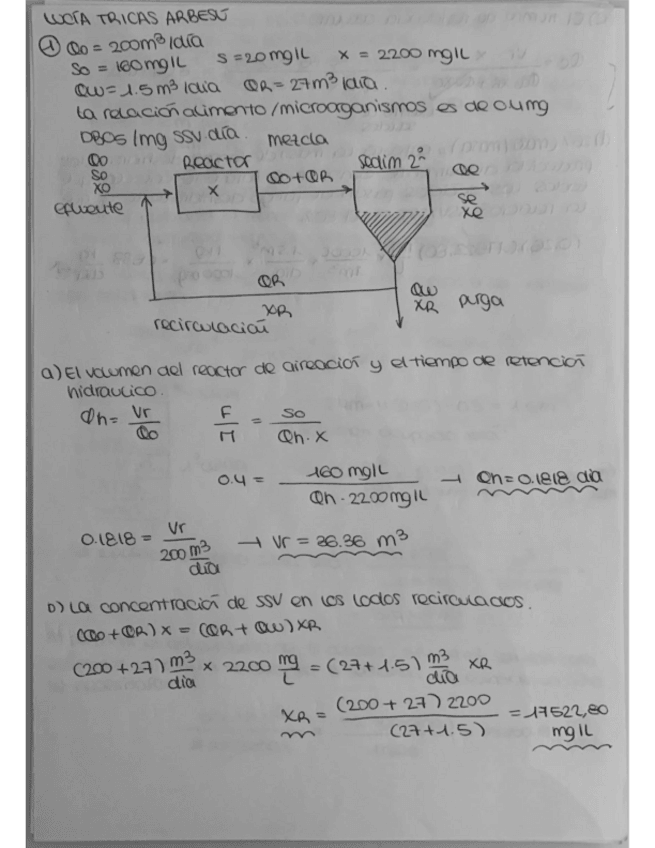 LUCÍA TRICAS ARBESÚ
① Qo = 200 m³/día
So = 160 mg/L S = 20 mg/L X = 2200 mg/L
Qw = 1.5 m³/día QR = 27 m³/día.
La relación alimento/microorganismos es de 0.4 mg
DBO5/mg SSV día. mezcla
Qo Reactor Qo+QR Sedim 2º Qe
So X Se
Xo Xe
efluente
QR Qw
XR XR purga
recirculación
a) El volumen del reactor de aireación y el tiempo de retención
hidraulico.
Θh = Vr/Qo F/M = So/(Θh · X)
0.4 = 160 mg/L / (Θh · 2200 mg/L) → Θh = 0.1818 día
0.1818 = Vr / 200 m³/día → Vr = 36.36 m³
b) La concentración de SSV en los lodos recirculados.
(Qo + QR) X = (QR + Qw) XR
(200 + 27) m³/día × 2200 mg/L = (27 + 1.5) m³/día XR
XR = (200 + 27) 2200 / (27 + 1.5) = 17522,80 mg/L